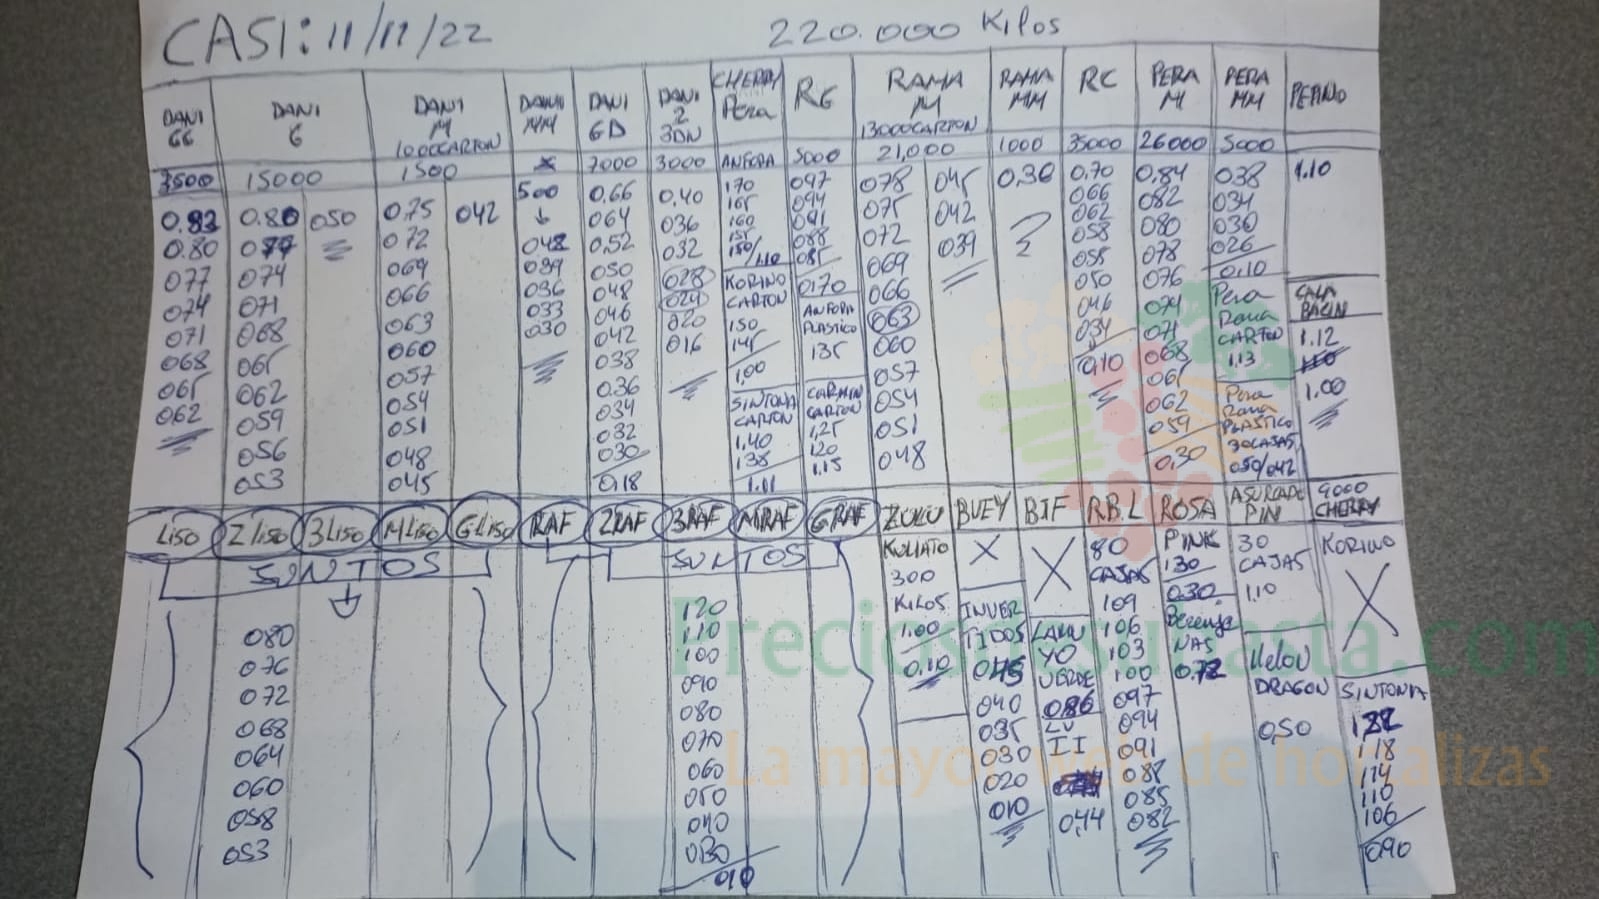 CASI: 11/11/22 220.000 Kilos
DANI GG
3500
0.83
0.80
077
074
071
068
065
062
DANI G
15000
0.80 050
077
074
071
068
065
062
059
056
053
DANI M 1000CARTON
1500
0.75 042
072
069
066
063
060
057
054
051
048
045
DANI MM
X
500
042
039
036
033
030
DANI GD
7000
0.66
064
0.52
050
048
046
042
038
0.36
034
032
030
0.18
DANI 2 3DN
3000
0.40
036
032
028
024
020
016
CHERRY Pera
ANFORA
170
165
160
155
150/1.10
KORINO
CARTON
1.50
145
1,00
SINTONIA
CARTON
1.40
138
1.01
RG
5000
097
094
091
088
085
0.70
ANFORA
PLASTICO
135
CARMIN
CARTON
1,25
120
1.15
RAMA M 13000CARTON
21,000
078 045
075 042
072 039
069
066
063
060
057
054
051
048
RAMA MM
1000
0.30
RC
35000
0.70
066
062
058
055
050
046
034
0,10
PERA M
26000
0.84
082
080
078
076
074
071
068
065
062
059
0,30
PERA MM
5000
038
034
030
026
0.10
Pera
Rama
CARTON
1.13
Pera
Rama
PLASTICO
30CAJAS
050/042
PEPINO
1.10
CALA
BACIN
1.12
1.00
LISO 2 LISO 3 LISO M LISO G LISO
JUNTOS
080
076
072
068
064
060
058
053
RAF 2RAF 3RAF MRAF GRAF
JUNTOS
120
1.10
100
090
080
070
060
050
040
030
010
ZULU
KUMATO
300
KILOS
1.00
0.10
BUEY
X
INVER
TIDOS
045
040
035
030
020
010
BIF
X
LAMU
YO
VERDE
086
LV
II
0,44
R.B.L
80
CAJAS
109
106
103
100
097
094
091
088
085
082
ROSA
PINK
130
0.30
Berenje
NAS
0.72
ASURCADO
PIN
30
CAJAS
1.10
Melon
DRAGON
0,50
9000
CHERRY
KORINO
X
SINTONIA
1,22
118
114
110
106
090
Preciosdesubasta.com
La mayor web de hortalizas